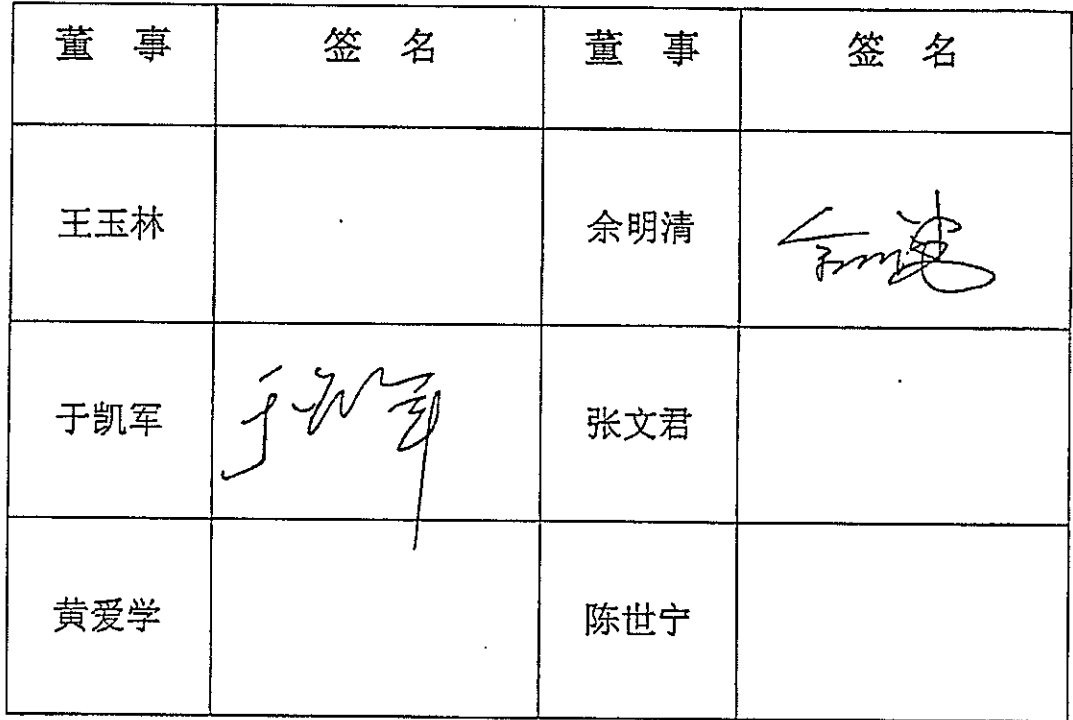 董 事 签 名 董 事 签 名
王玉林 余明清 余明清
于凯军 于凯军 张文君
黄爱学 陈世宁